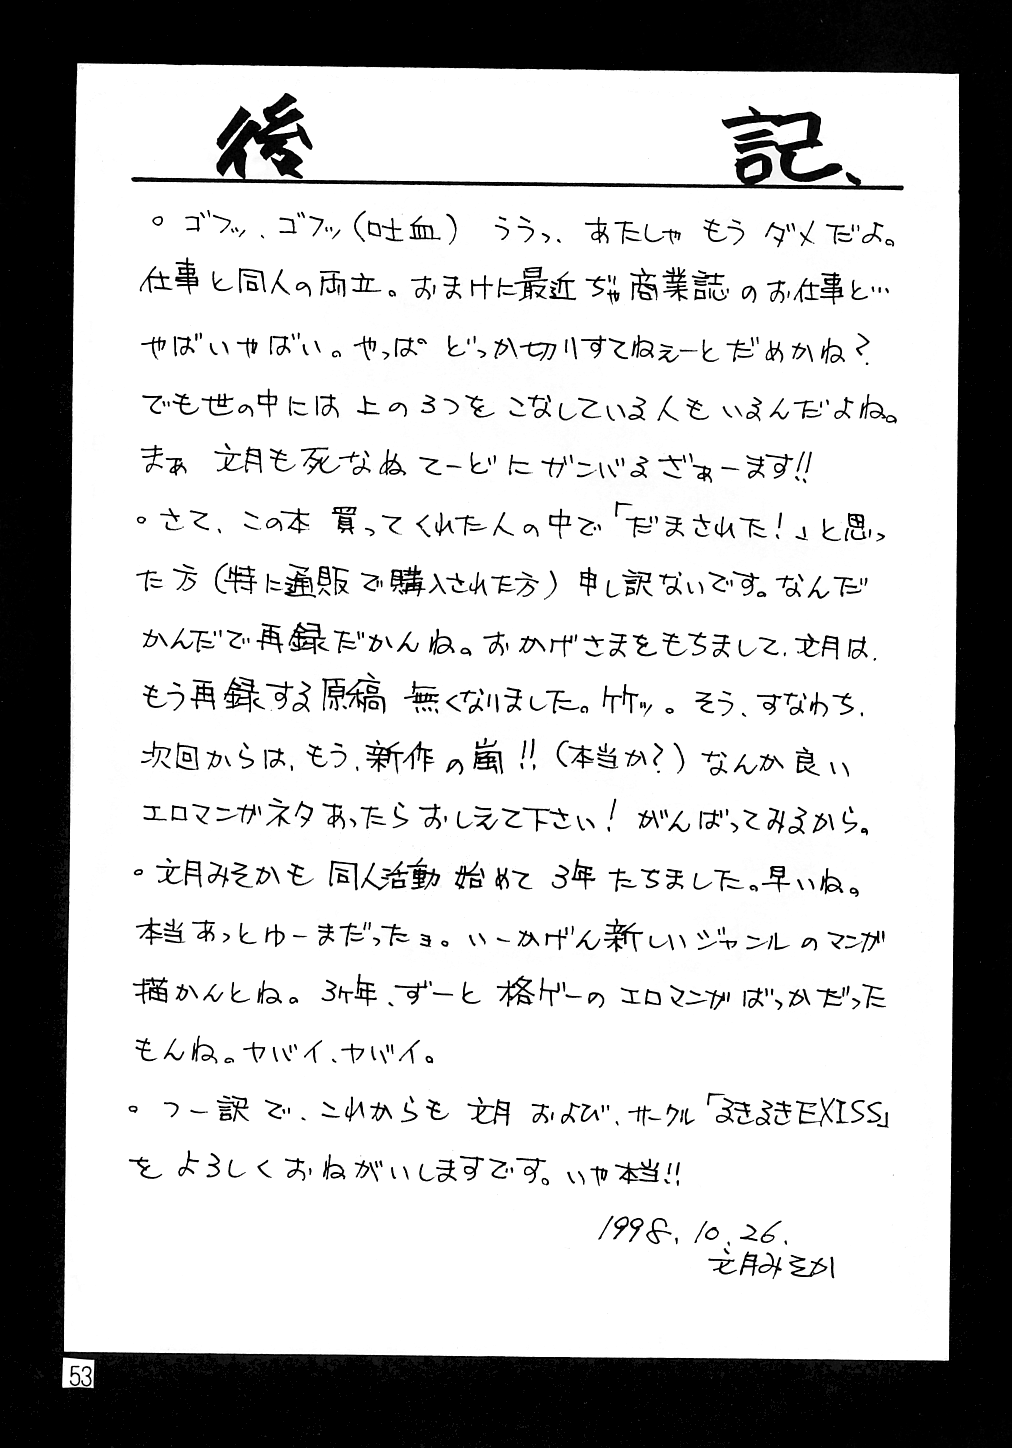 後記、
◦ゴフッ、ゴフッ(吐血) ううっ、あたしゃもうダメだよ。
仕事と同人の両立。おまけに最近ぢゃ商業誌のお仕事と…
やばいやばい。やっぱ どっか切りすてねぇーとだめかね？
でも世の中には上の3つをこなしている人もいるんだよね。
まぁ 文月も死なぬてーどにガンバるざぁーます!!
◦さて、この本 買ってくれた人の中で「だまされた！」と思っ
た方(特に通販で購入された方) 申し訳ないです。なんだ
かんだで再録だかんね。おかげさまをもちまして、文月は、
もう再録する原稿 無くなりました。ケケッ。そう、すなわち、
次回からは、もう、新作の嵐!!(本当か？)なんか良い
エロマンガネタあったらおしえて下さい！がんばってみるから。
◦文月みそかも 同人活動 始めて 3年 たちました。早いね。
本当あっとゆーまだったョ。いーかげん新しいジャンルのマンガ
描かんとね。3ヶ年、ずーと 格ゲーのエロマンガばっかだった
もんね。ヤバイ、ヤバイ。
◦つー訳で、これからも 文月 および、サークル「るきるきEXISS」
を よろしくおねがいしますです。いや本当!!
1998.10.26.
文月みそか
53